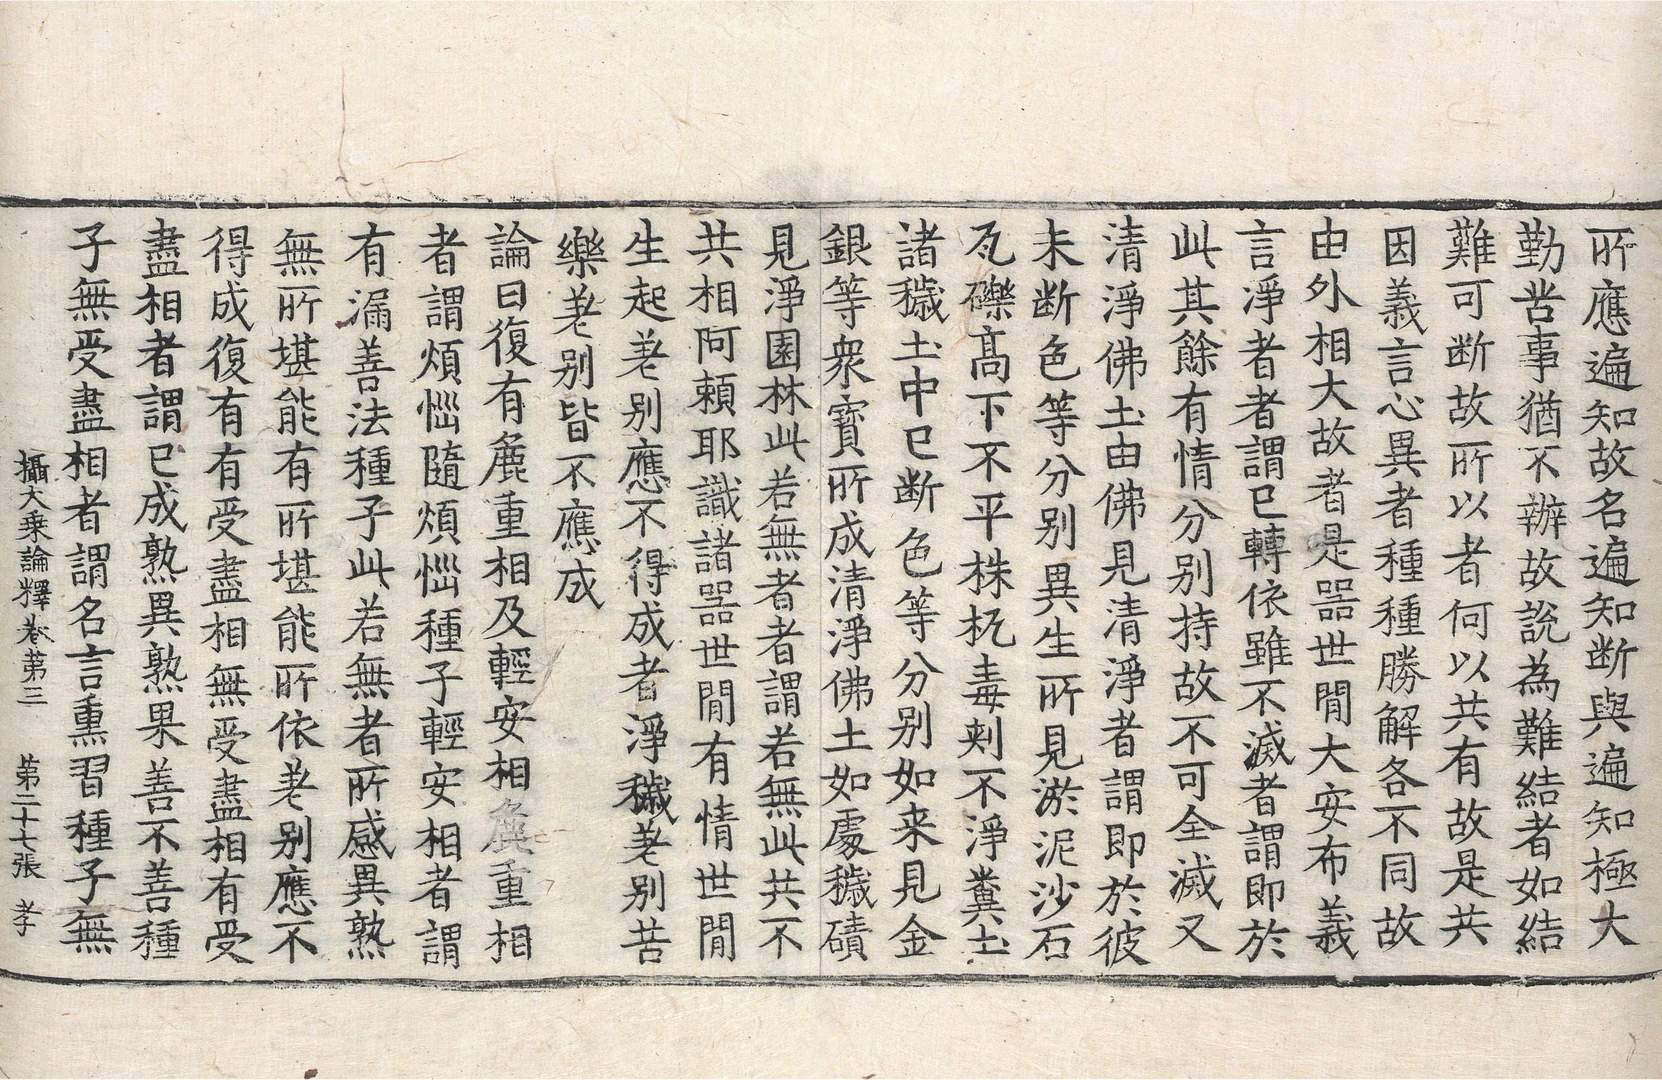 所應遍知故名遍知断與遍知極大
勤苦事猶不辦故説為難結者如結
難可断故所以者何以共有故是共
因義言心異者種種勝解各不同故
由外相大故者是器世間大安布義
言淨者者謂已轉依雖不滅者謂即於
此其餘有情分别持故不可全滅又
清淨佛土由佛見清淨者謂即於彼
未断色等分别異生所見淤泥沙石
瓦礫髙下不平株杌毒刺不淨糞土
諸穢土中已断色等分别如来見金
銀等衆寶所成清淨佛土如處穢磧
見淨園林此若無者者謂若無此共不
共相阿頼耶識諸器世間有情世間
生起差别應不得成者淨穢差别苦
樂差别皆不應成
論曰復有麁重相及輕安相麁重相
者謂煩惱隨煩惱種子輕安相者謂
有漏善法種子此若無者所感異熟
無所堪能有所堪能所依差别應不
得成復有有受盡相無受盡相有受
盡相者謂已成熟異熟果善不善種
子無受盡相者謂名言熏習種子無
攝大乘論釋卷第三　第二十七張　孝